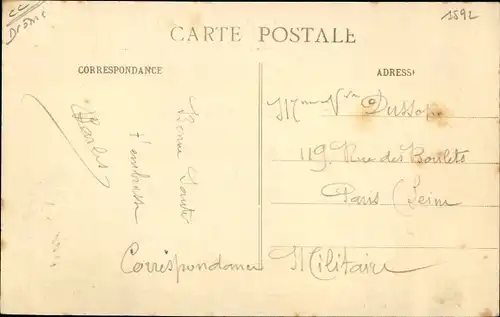 CC
Drôme
1592
CARTE POSTALE
CORRESPONDANCE
ADRESSE
Bonne Santé
t'embrasse
Charles
Mme Vve Dussol
119. Rue des Boulets
Paris (Seine
Correspondance Militaire